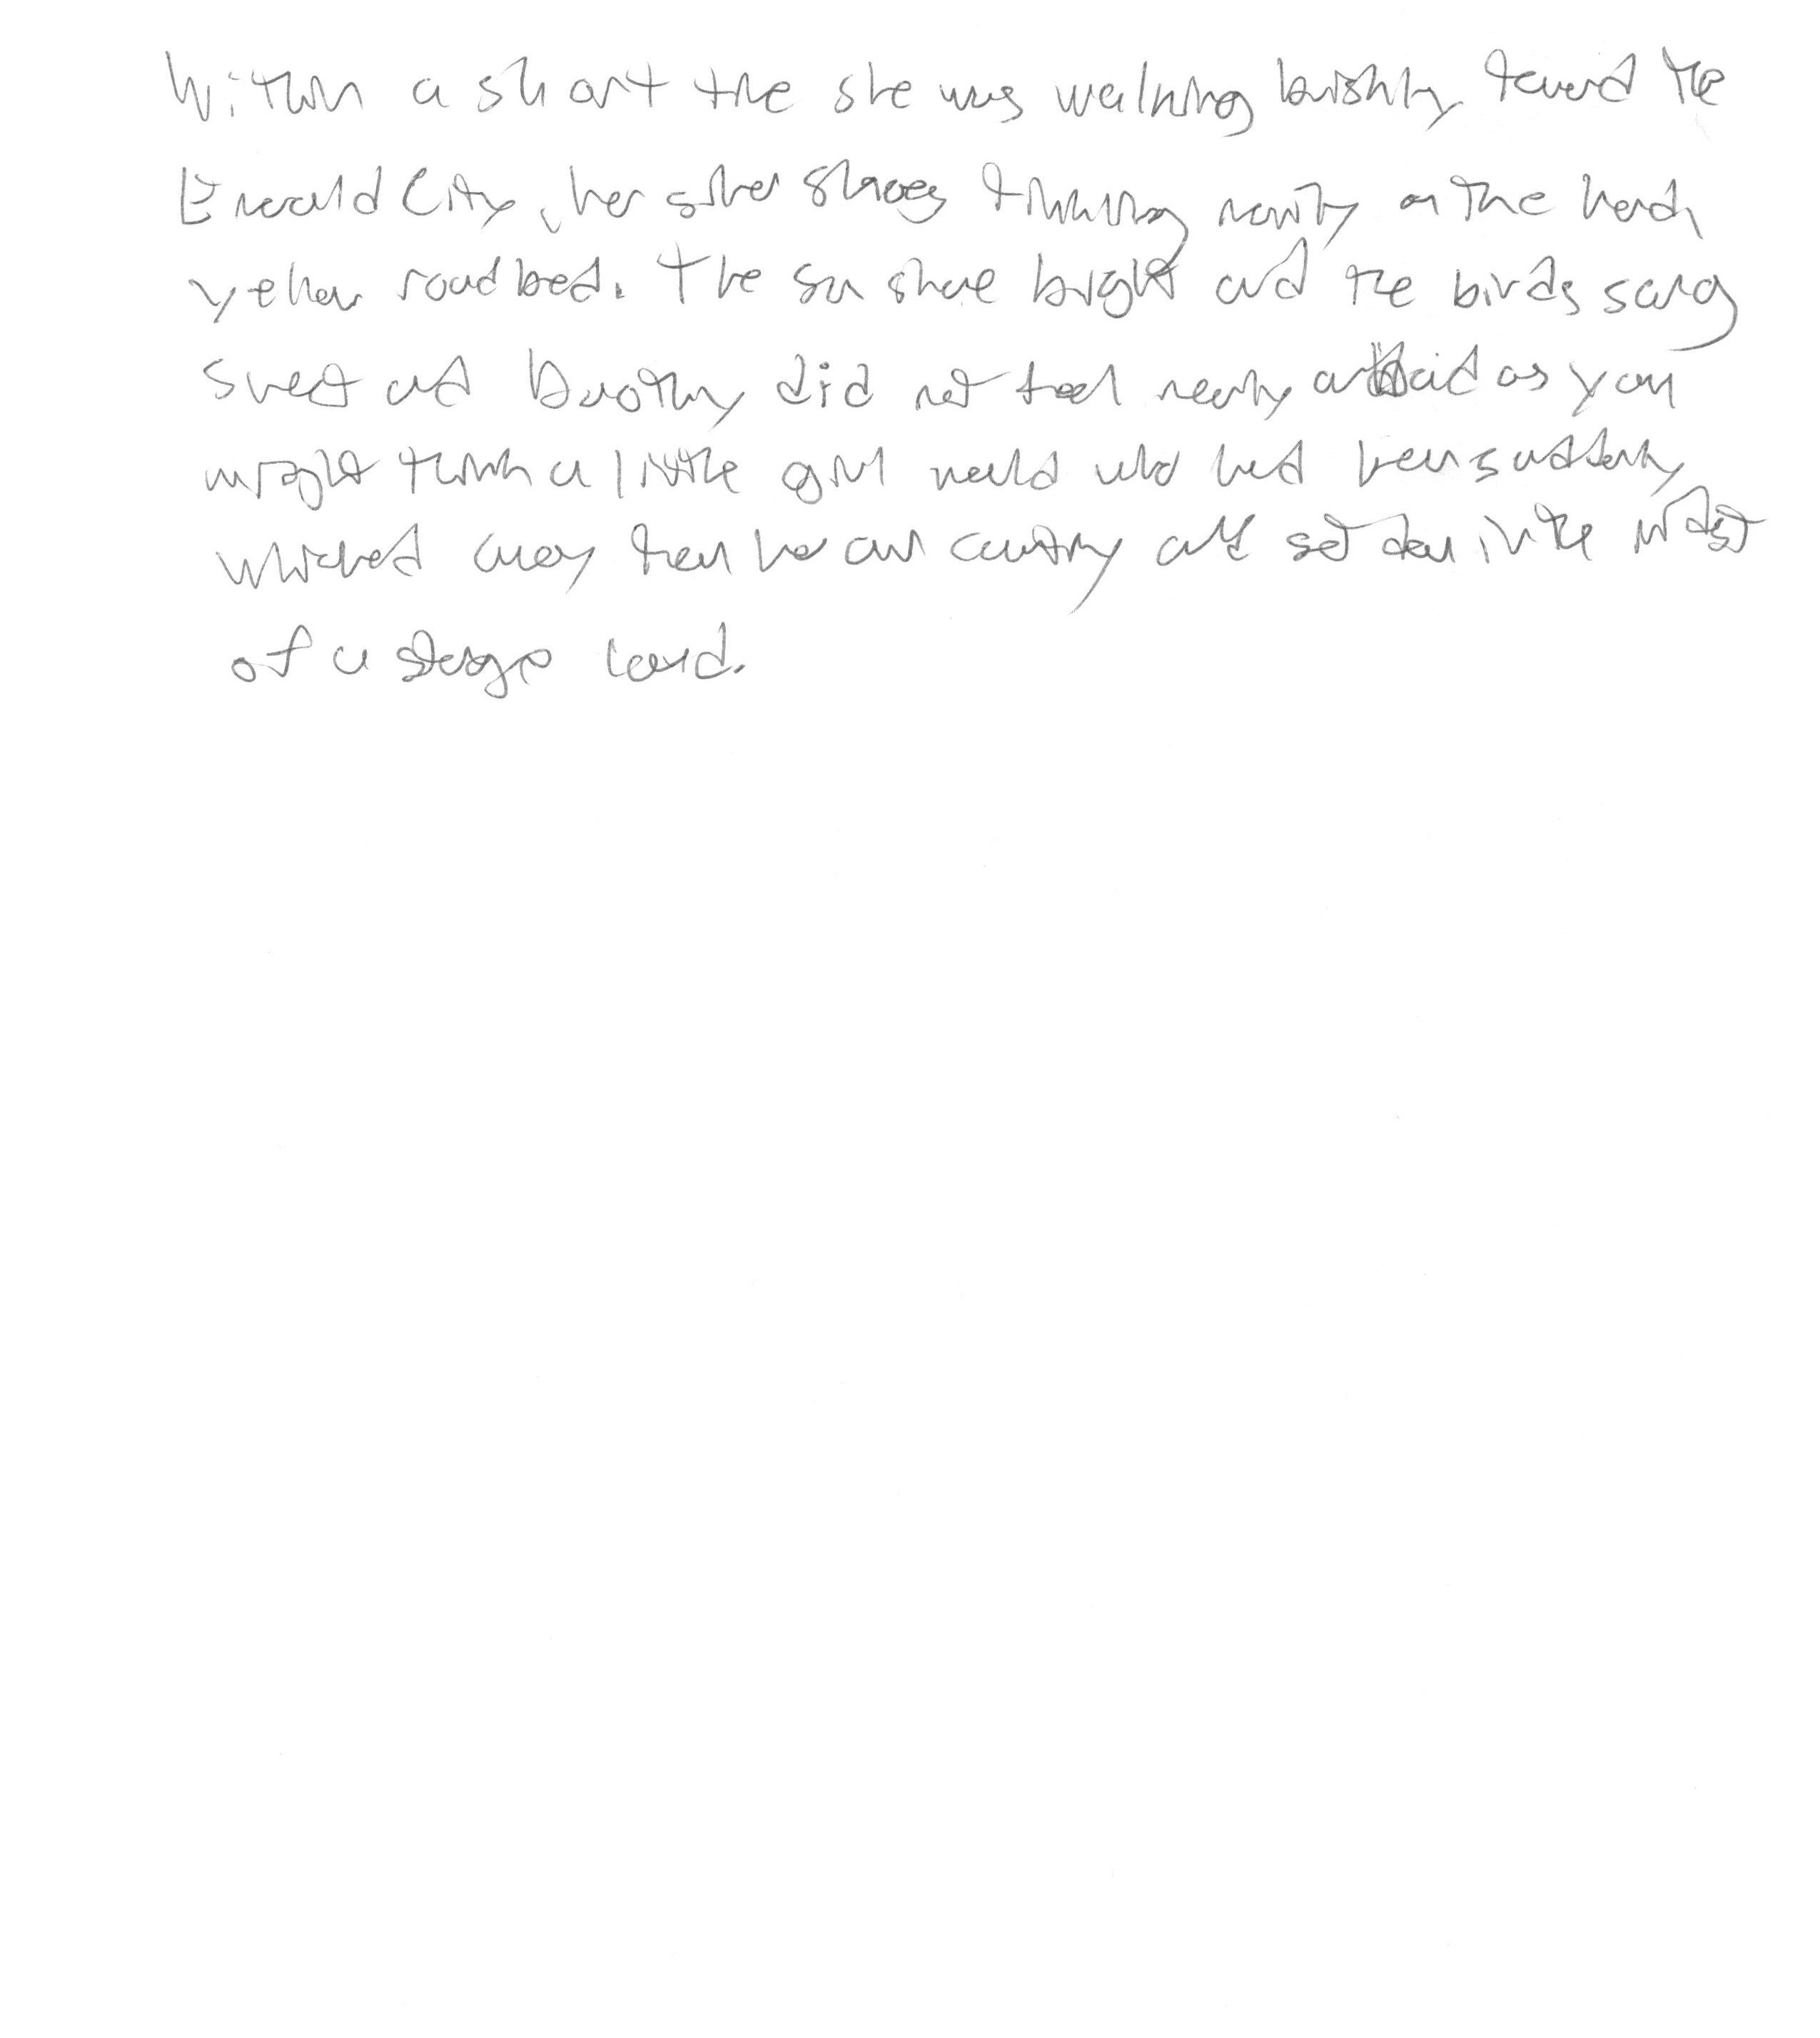 Within a short time she was walking briskly toward the
Emerald City, her silver shoes tinkling merrily on the hard,
yellow roadbed. The sun shone bright and the birds sang
sweet and Dorothy did not feel nearly afraid as you
might think a little girl would who had been suddenly
whisked away from her own country and set down in the midst
of a strange land.